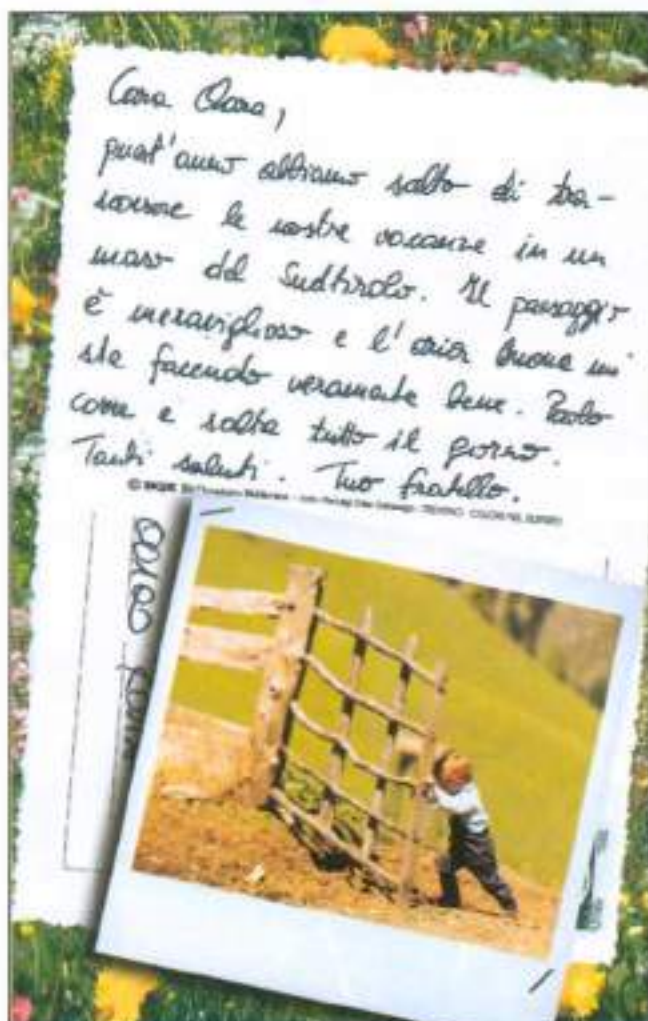 Cara Clara,
quest'anno abbiamo scelto di tra-
scorrere le nostre vacanze in un
maso del Sudtirolo. Il paesaggio
è meraviglioso e l'aria buona mi
sta facendo veramente bene. Paolo
corre e salta tutto il giorno.
Tanti saluti. Tuo fratello.